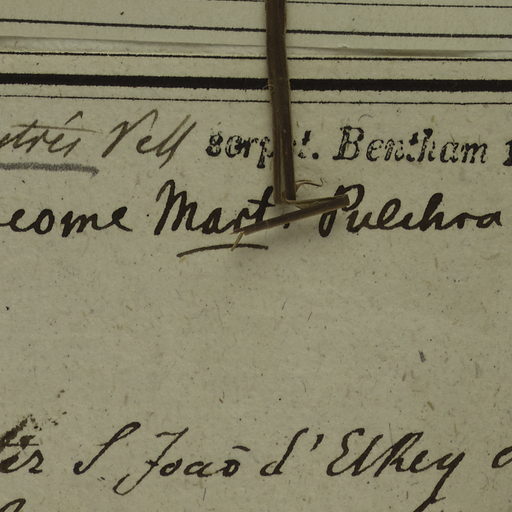 stris Vell scrpsit. Bentham 1
come Mart. Pulchra
ter S Joaõ d'ElRey